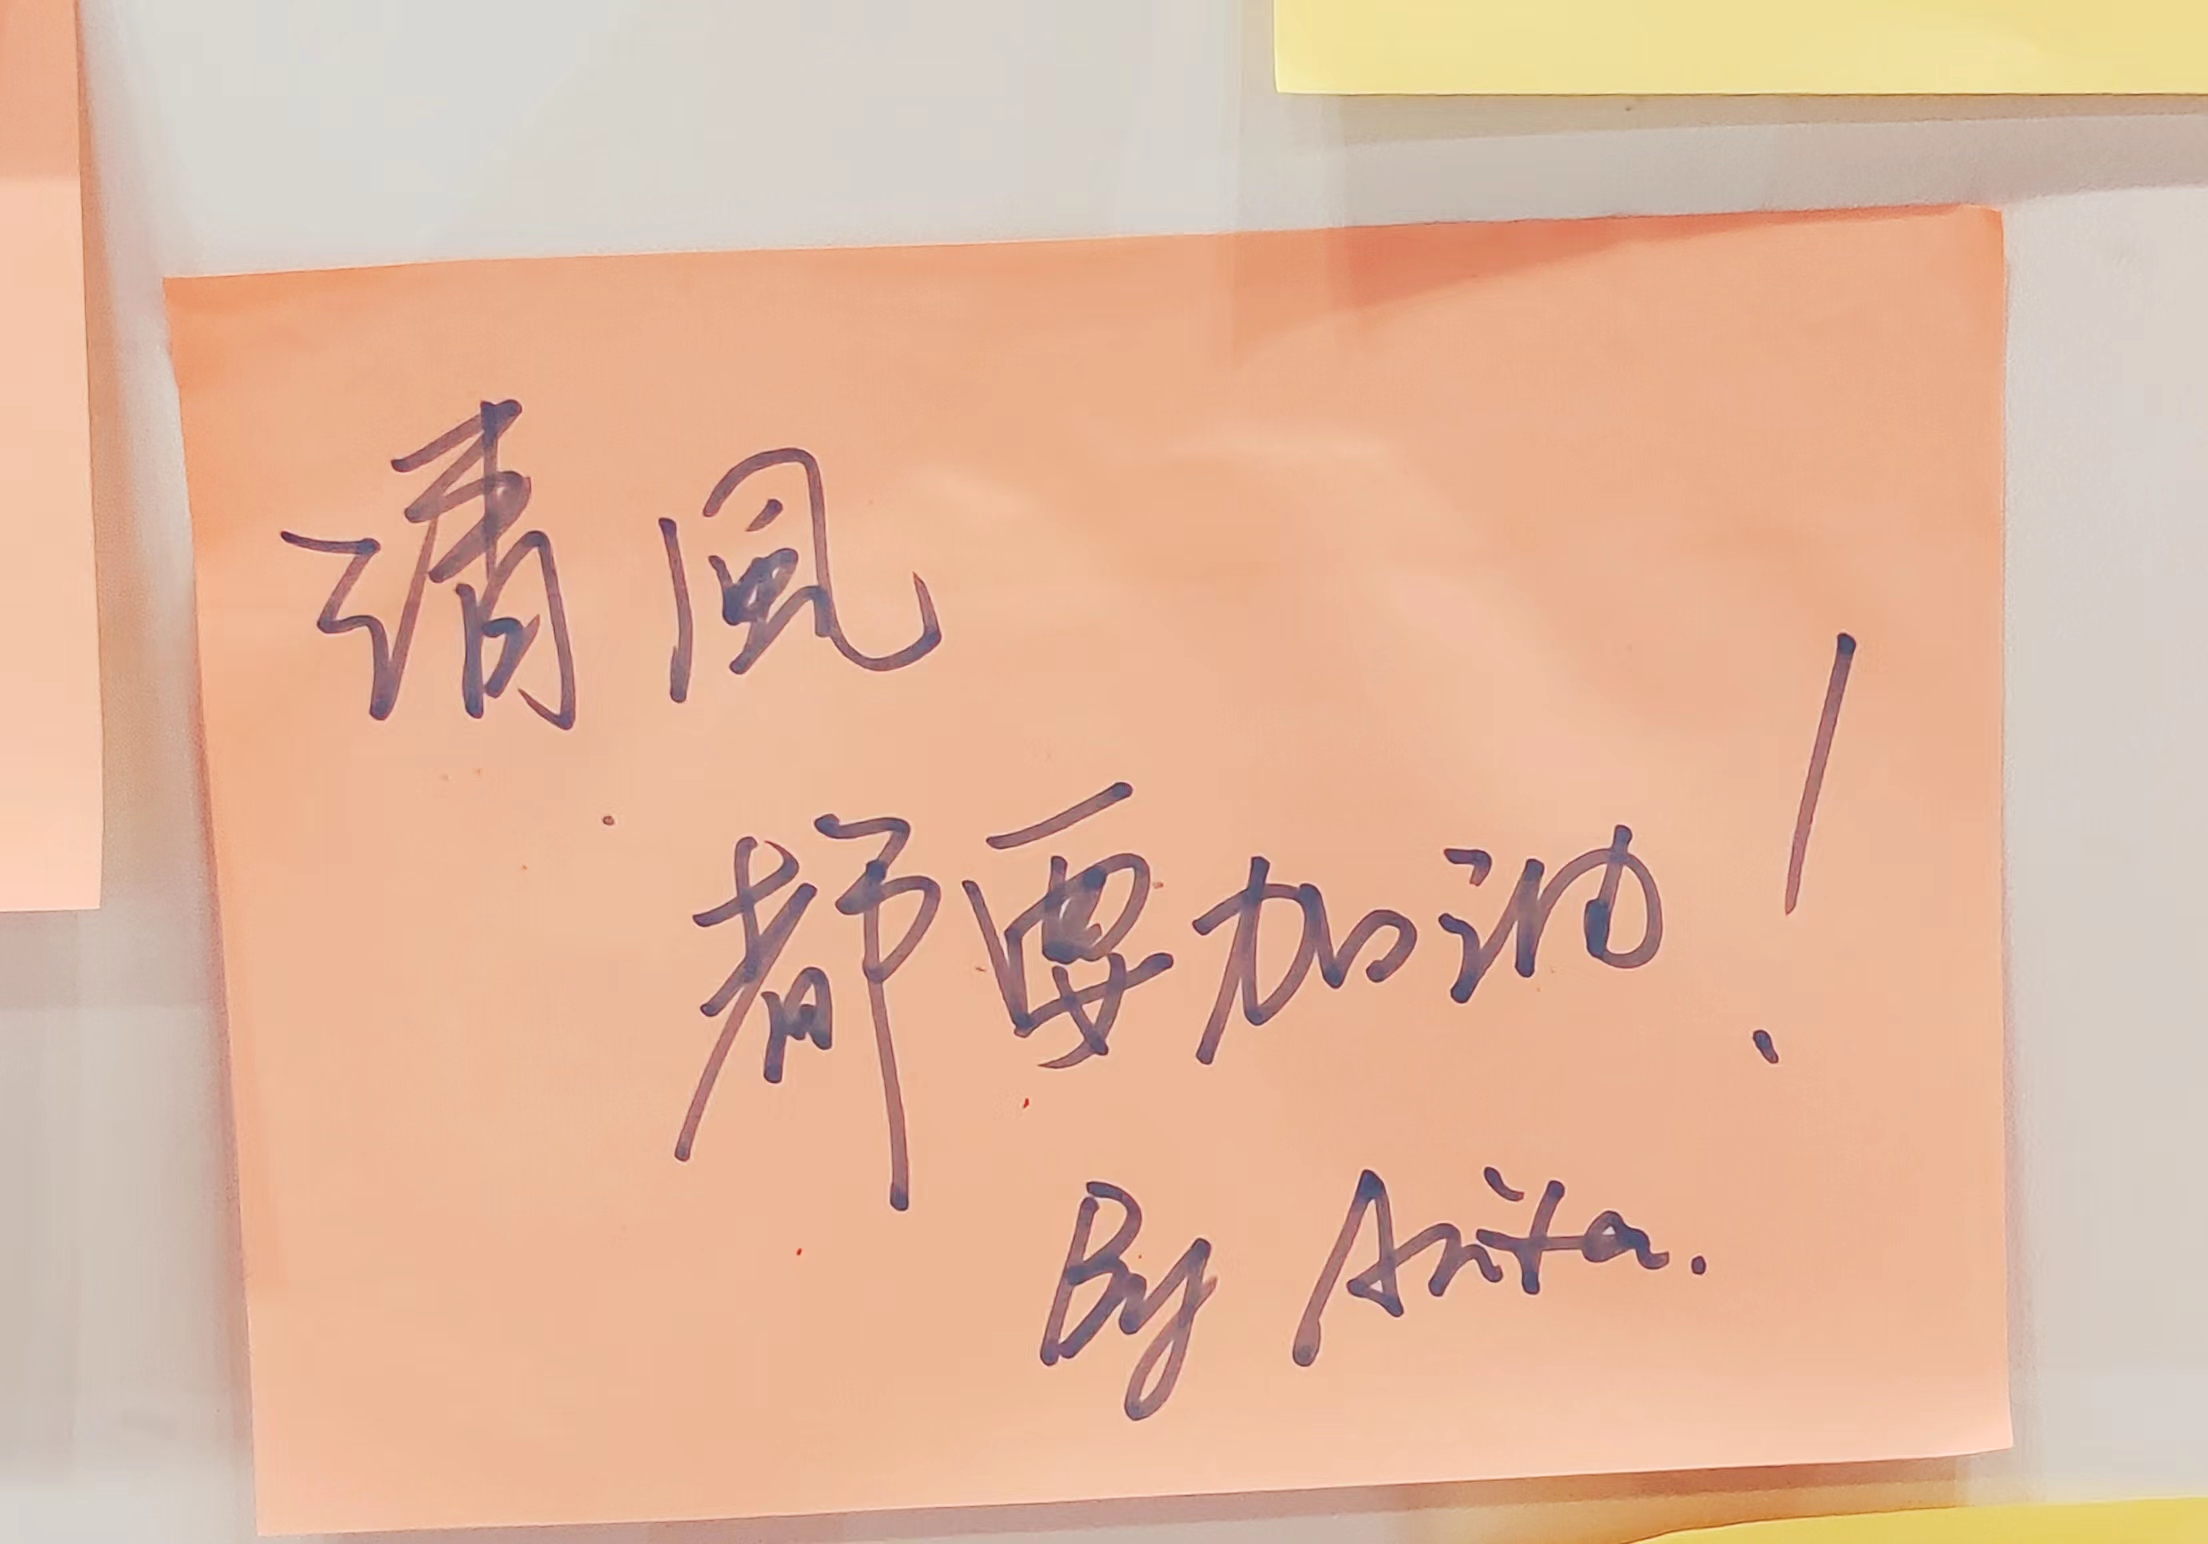 清風
都要加油!
By Anita.